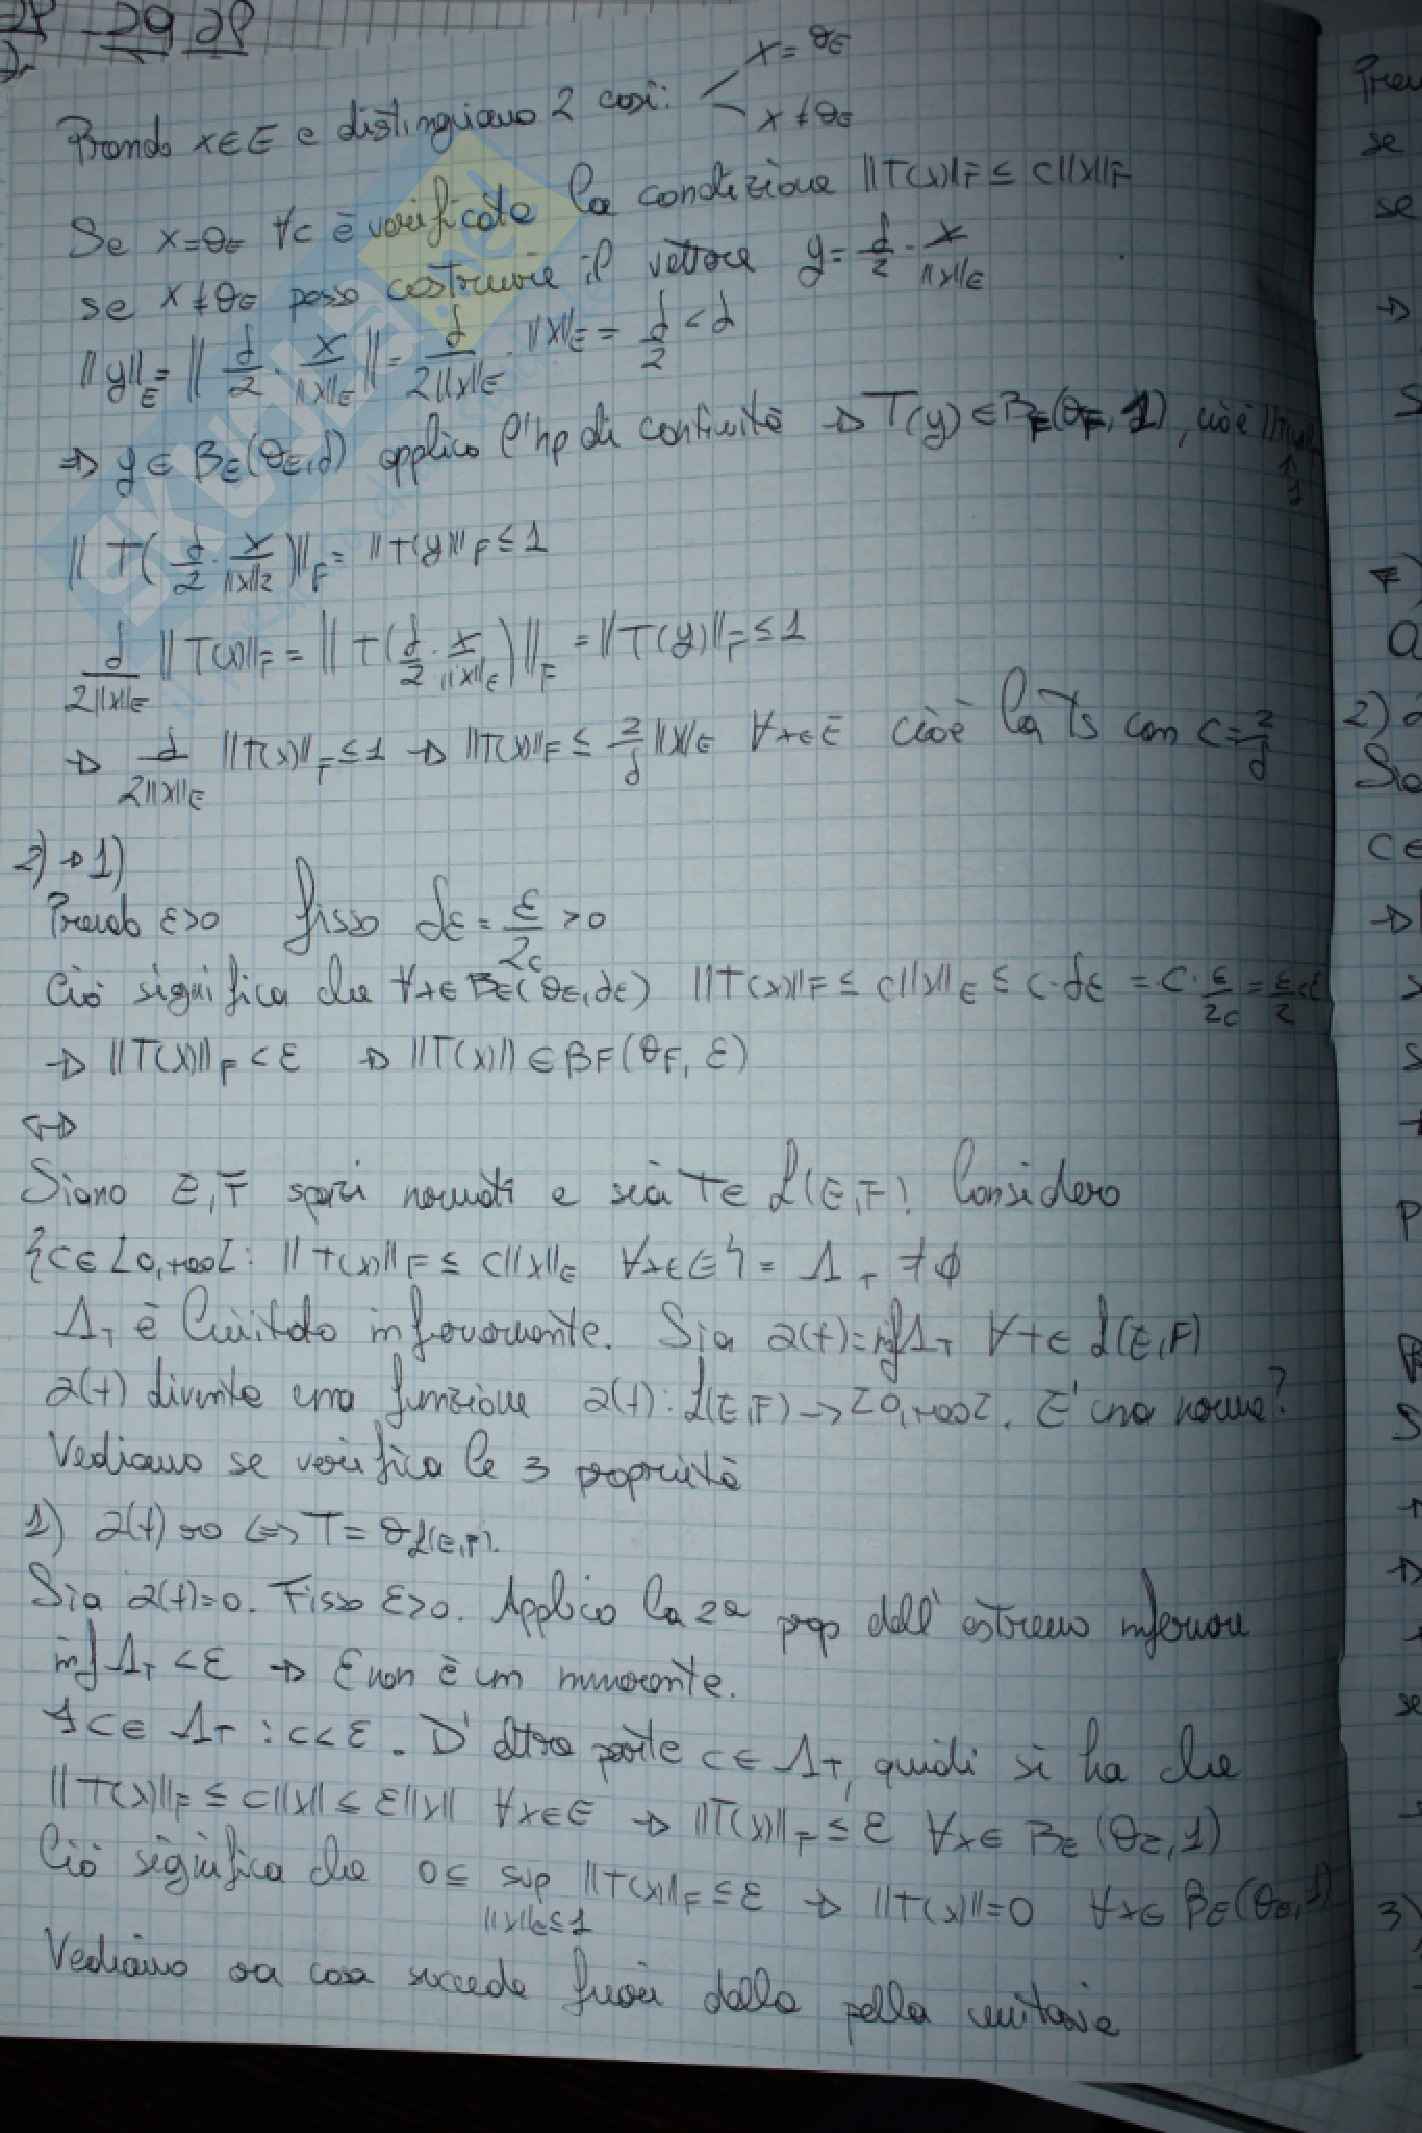 29 28
x = θE
Prendo x∈E e distinguiamo 2 casi:
x ≠ θE
Se x=θE ∀c è verificata la condizione ||T(x)||F ≤ C||x||F
se x≠θE posso costruire il vettore y = d/2 · x/||x||E
||y||E = || d/2 · x/||x||E || = d/2||x||E · ||x||E = d/2 < d
⇒ y ∈ BE(θE,d) applico l'hp di continuità → T(y) ∈ BF(θF, 1), cioè
||T( d/2 · x/||x||E )||F = ||T(y)||F ≤ 1
d/2||x||E ||T(x)||F = || T( d/2 · x/||x||E ) ||F = ||T(y)||F ≤ 1
→ d/2||x||E ||T(x)||F ≤ 1 → ||T(x)||F ≤ 2/d ||x||E ∀x∈E cioè la Ts con C = 2/d
2) → 1)
Prendo ε>0 fisso dε = ε/2c >0
Ciò significa che ∀x∈ BE(θE,dε) ||T(x)||F ≤ c||x||E ≤ c·dε = c · ε/2c = ε/2 < ε
→ ||T(x)||F < ε → ||T(x)|| ∈ BF(θF, ε)
↔
Siano E,F spazi normati e sia T∈ L(E,F). Considero
{c∈[0,+∞[ : ||T(x)||F ≤ c||x||E ∀x∈E} = ΛT ≠ ∅
ΛT è limitato inferiormente. Sia α(t) = inf ΛT ∀T∈ L(E,F)
α(t) diventa una funzione α(t) : L(E,F) → [0,+∞[. E' una norma?
Vediamo se verifica le 3 proprietà
1) α(t)=0 ⇔ T = θL(E,F).
Sia α(t)=0. Fisso ε>0. Applico la 2a prop dell'estremo inferiore
inf ΛT < ε → ε non è un minorante.
∃ c∈ ΛT : c<ε. D'altra parte c∈ ΛT, quindi si ha che
||T(x)||F ≤ c||x|| ≤ ε||x|| ∀x∈E → ||T(x)||F ≤ ε ∀x∈ BE(θE,1)
Ciò significa che 0 ≤ sup ||T(x)||F ≤ ε → ||T(x)||=0 ∀x∈ BE(θE,1)
||x||E≤1
Vediamo ora cosa succede fuori dalla palla unitaria